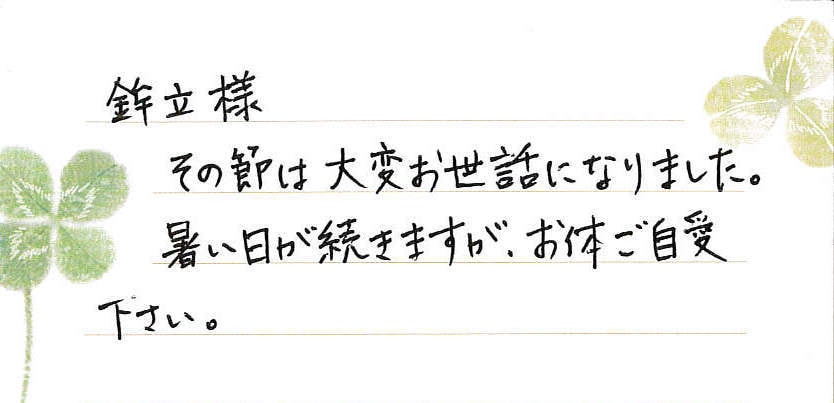 鉾立様
その節は大変お世話になりました。
暑い日が続きますが、お体ご自愛
下さい。